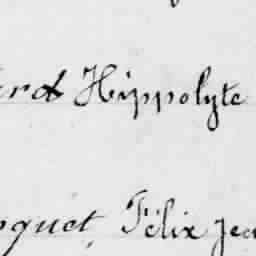 erd Hippolyte
oquet, Félix Jea